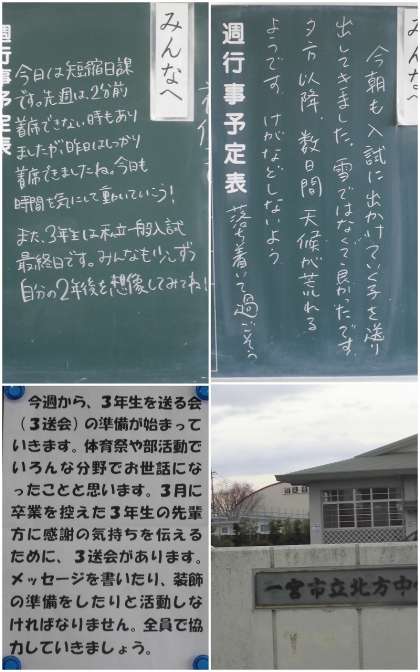 みんなへ
週行事予定表
今日は短縮日課
です。先週は、2分前
着席できない時もあり
ましたが、昨日はしっかり
着席できましたね。今日も
時間を気にして動いていこう！
また、3年生は私立一般入試
最終日です。みんなも少しずつ
自分の2年後を想像してみてね！
みんなへ
今朝も入試に出かけていく子を送り
出してきました。雪ではなくて良かったです。
夕方以降、数日間天候が荒れる
ようです。けがなどしないよう
落ち着いて過ごそう
週行事予定表
今週から、3年生を送る会
（3送会）の準備が始まって
いきます。体育祭や部活動で
いろんな分野でお世話にな
ったことと思います。3月に
卒業を控えた3年生の先輩
方に感謝の気持ちを伝える
ために、3送会があります。
メッセージを書いたり、装飾
の準備をしたりと活動しな
ければなりません。全員で協
力していきましょう。
一宮市立北方中